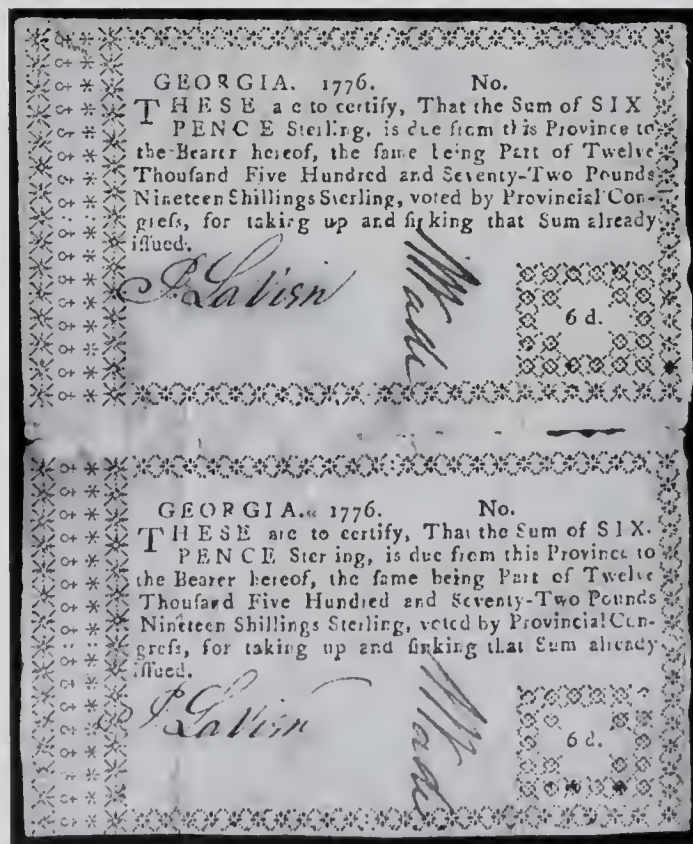 GEORGIA. 1776. No.
THESE a e to certify, That the Sum of SIX
PENCE Sterling, is due from this Province to
the Bearer hereof, the ſame being Part of Twelve
Thouſand Five Hundred and Seventy-Two Pounds
Nineteen Shillings Sterling, voted by Provincial Con-
greſs, for taking up and ſinking that Sum already
iſſued.
6 d.
GEORGIA. 1776. No.
THESE are to certify, That the Sum of SIX-
PENCE Ster ing, is due from this Province to
the Bearer hereof, the ſame being Part of Twelve
Thouſand Five Hundred and Seventy-Two Pounds
Nineteen Shillings Sterling, voted by Provincial Con-
greſs, for taking up and ſinking that Sum already
iſſued.
6 d.